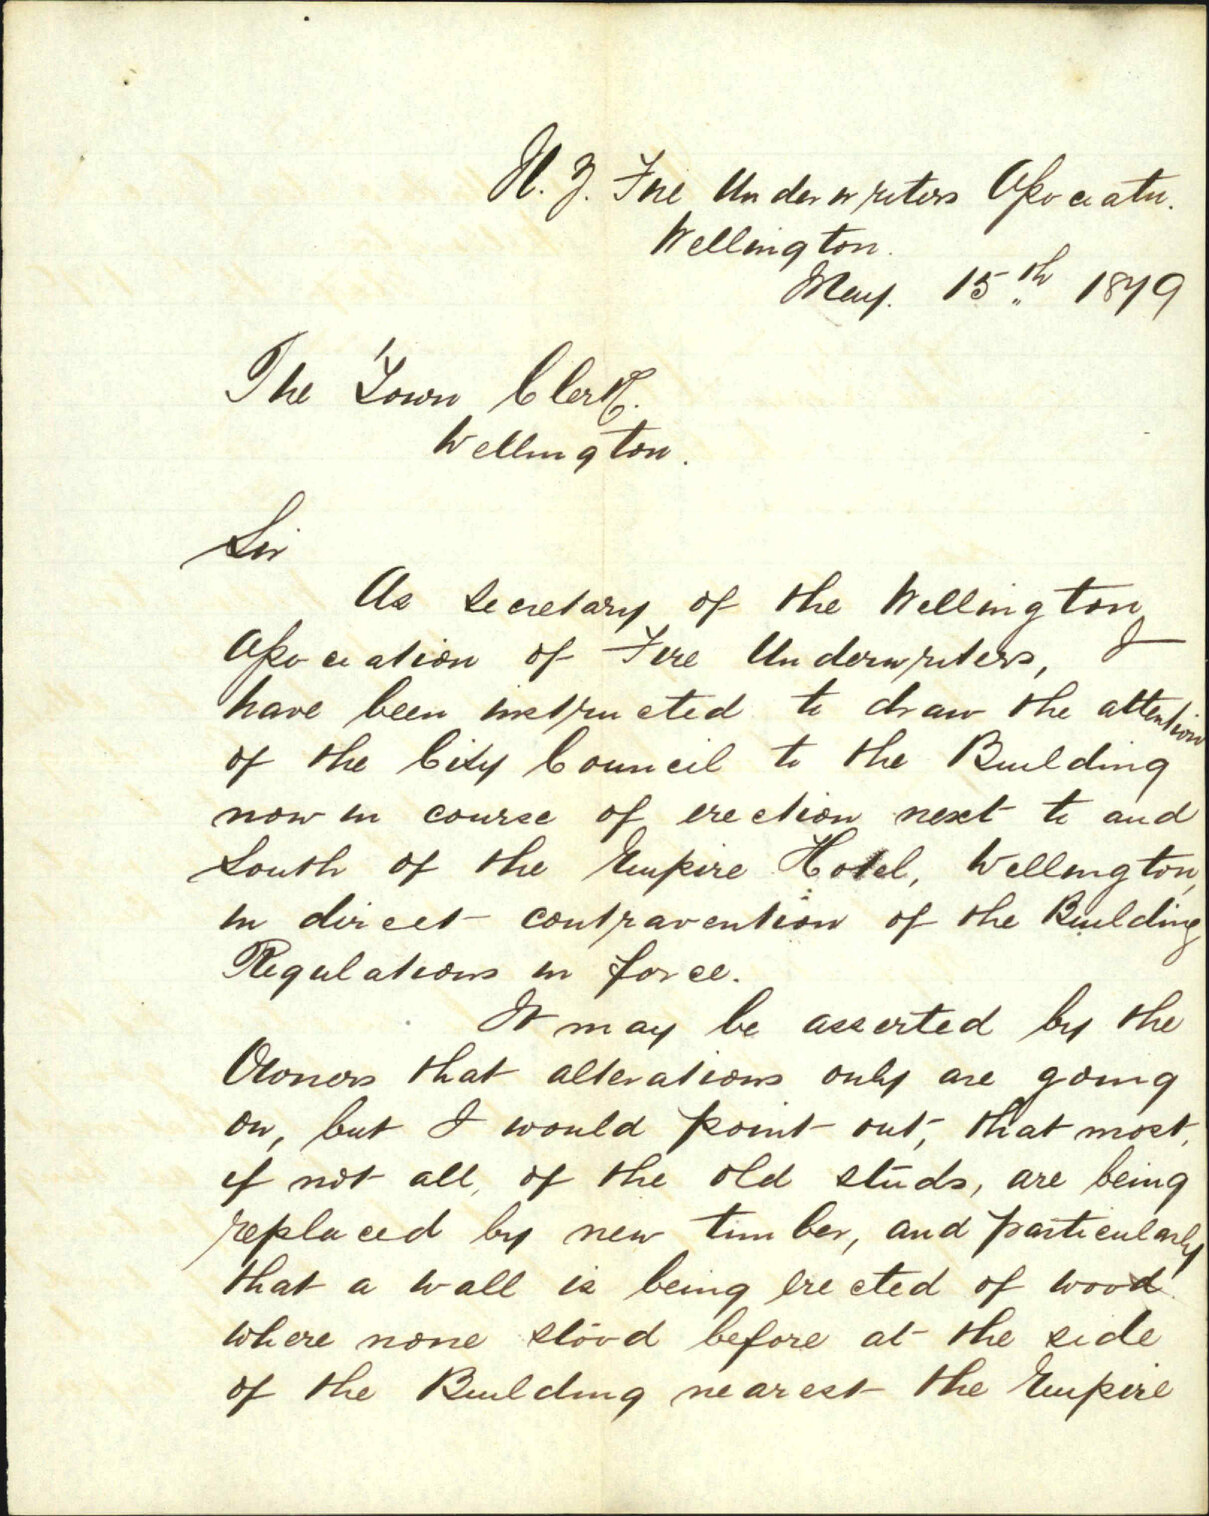 N. Z. Fire Underwriters Associatn.
Wellington.
May. 15th 1879
The Town Clerk.
Wellington.
Sir
As Secretary of the Wellington
Association of Fire Underwriters, I
have been instructed to draw the attention
of the City Council to the Building
now in course of erection next to and
South of the Empire Hotel, Wellington,
in direct contravention of the Building
Regulations in force.
It may be asserted by the
Owners that alterations only are going
on, but I would point out, that most,
if not all, of the old studs, are being
replaced by new timber, and particularly
that a wall is being erected of wood
where none stood before at the side
of the Building nearest the Empire